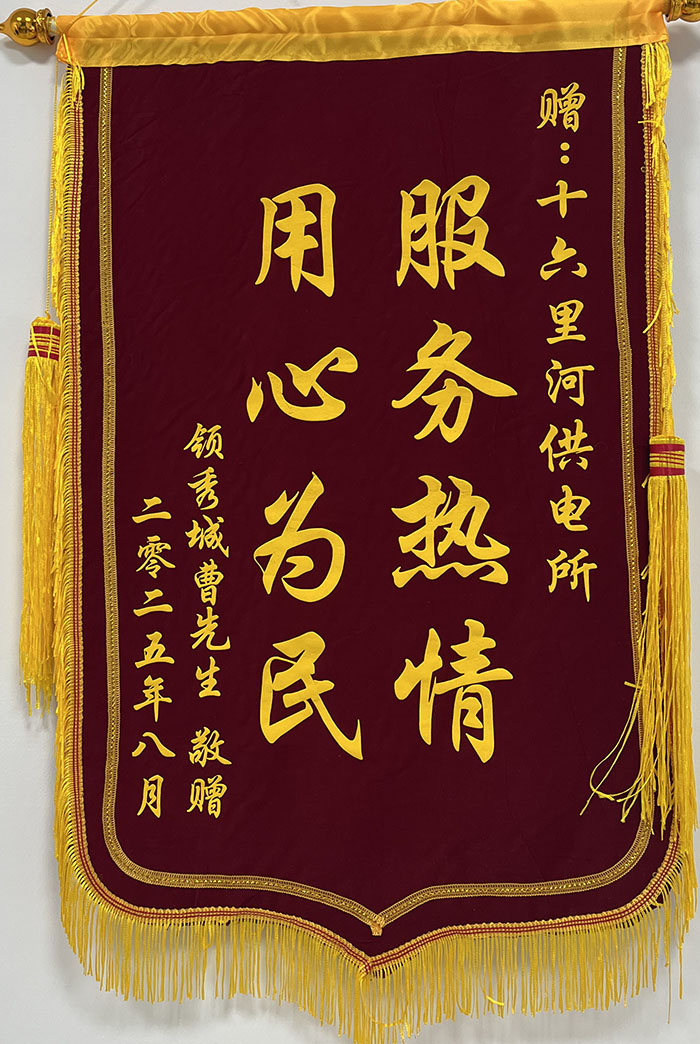 赠：十六里河供电所
服务热情
用心为民
领秀城曹先生 敬赠
二零二五年八月